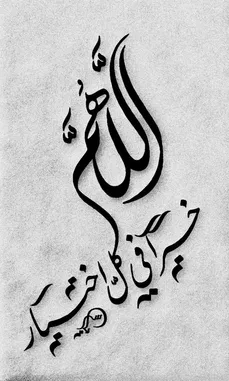 اللهم
خيرا في كل اختيار